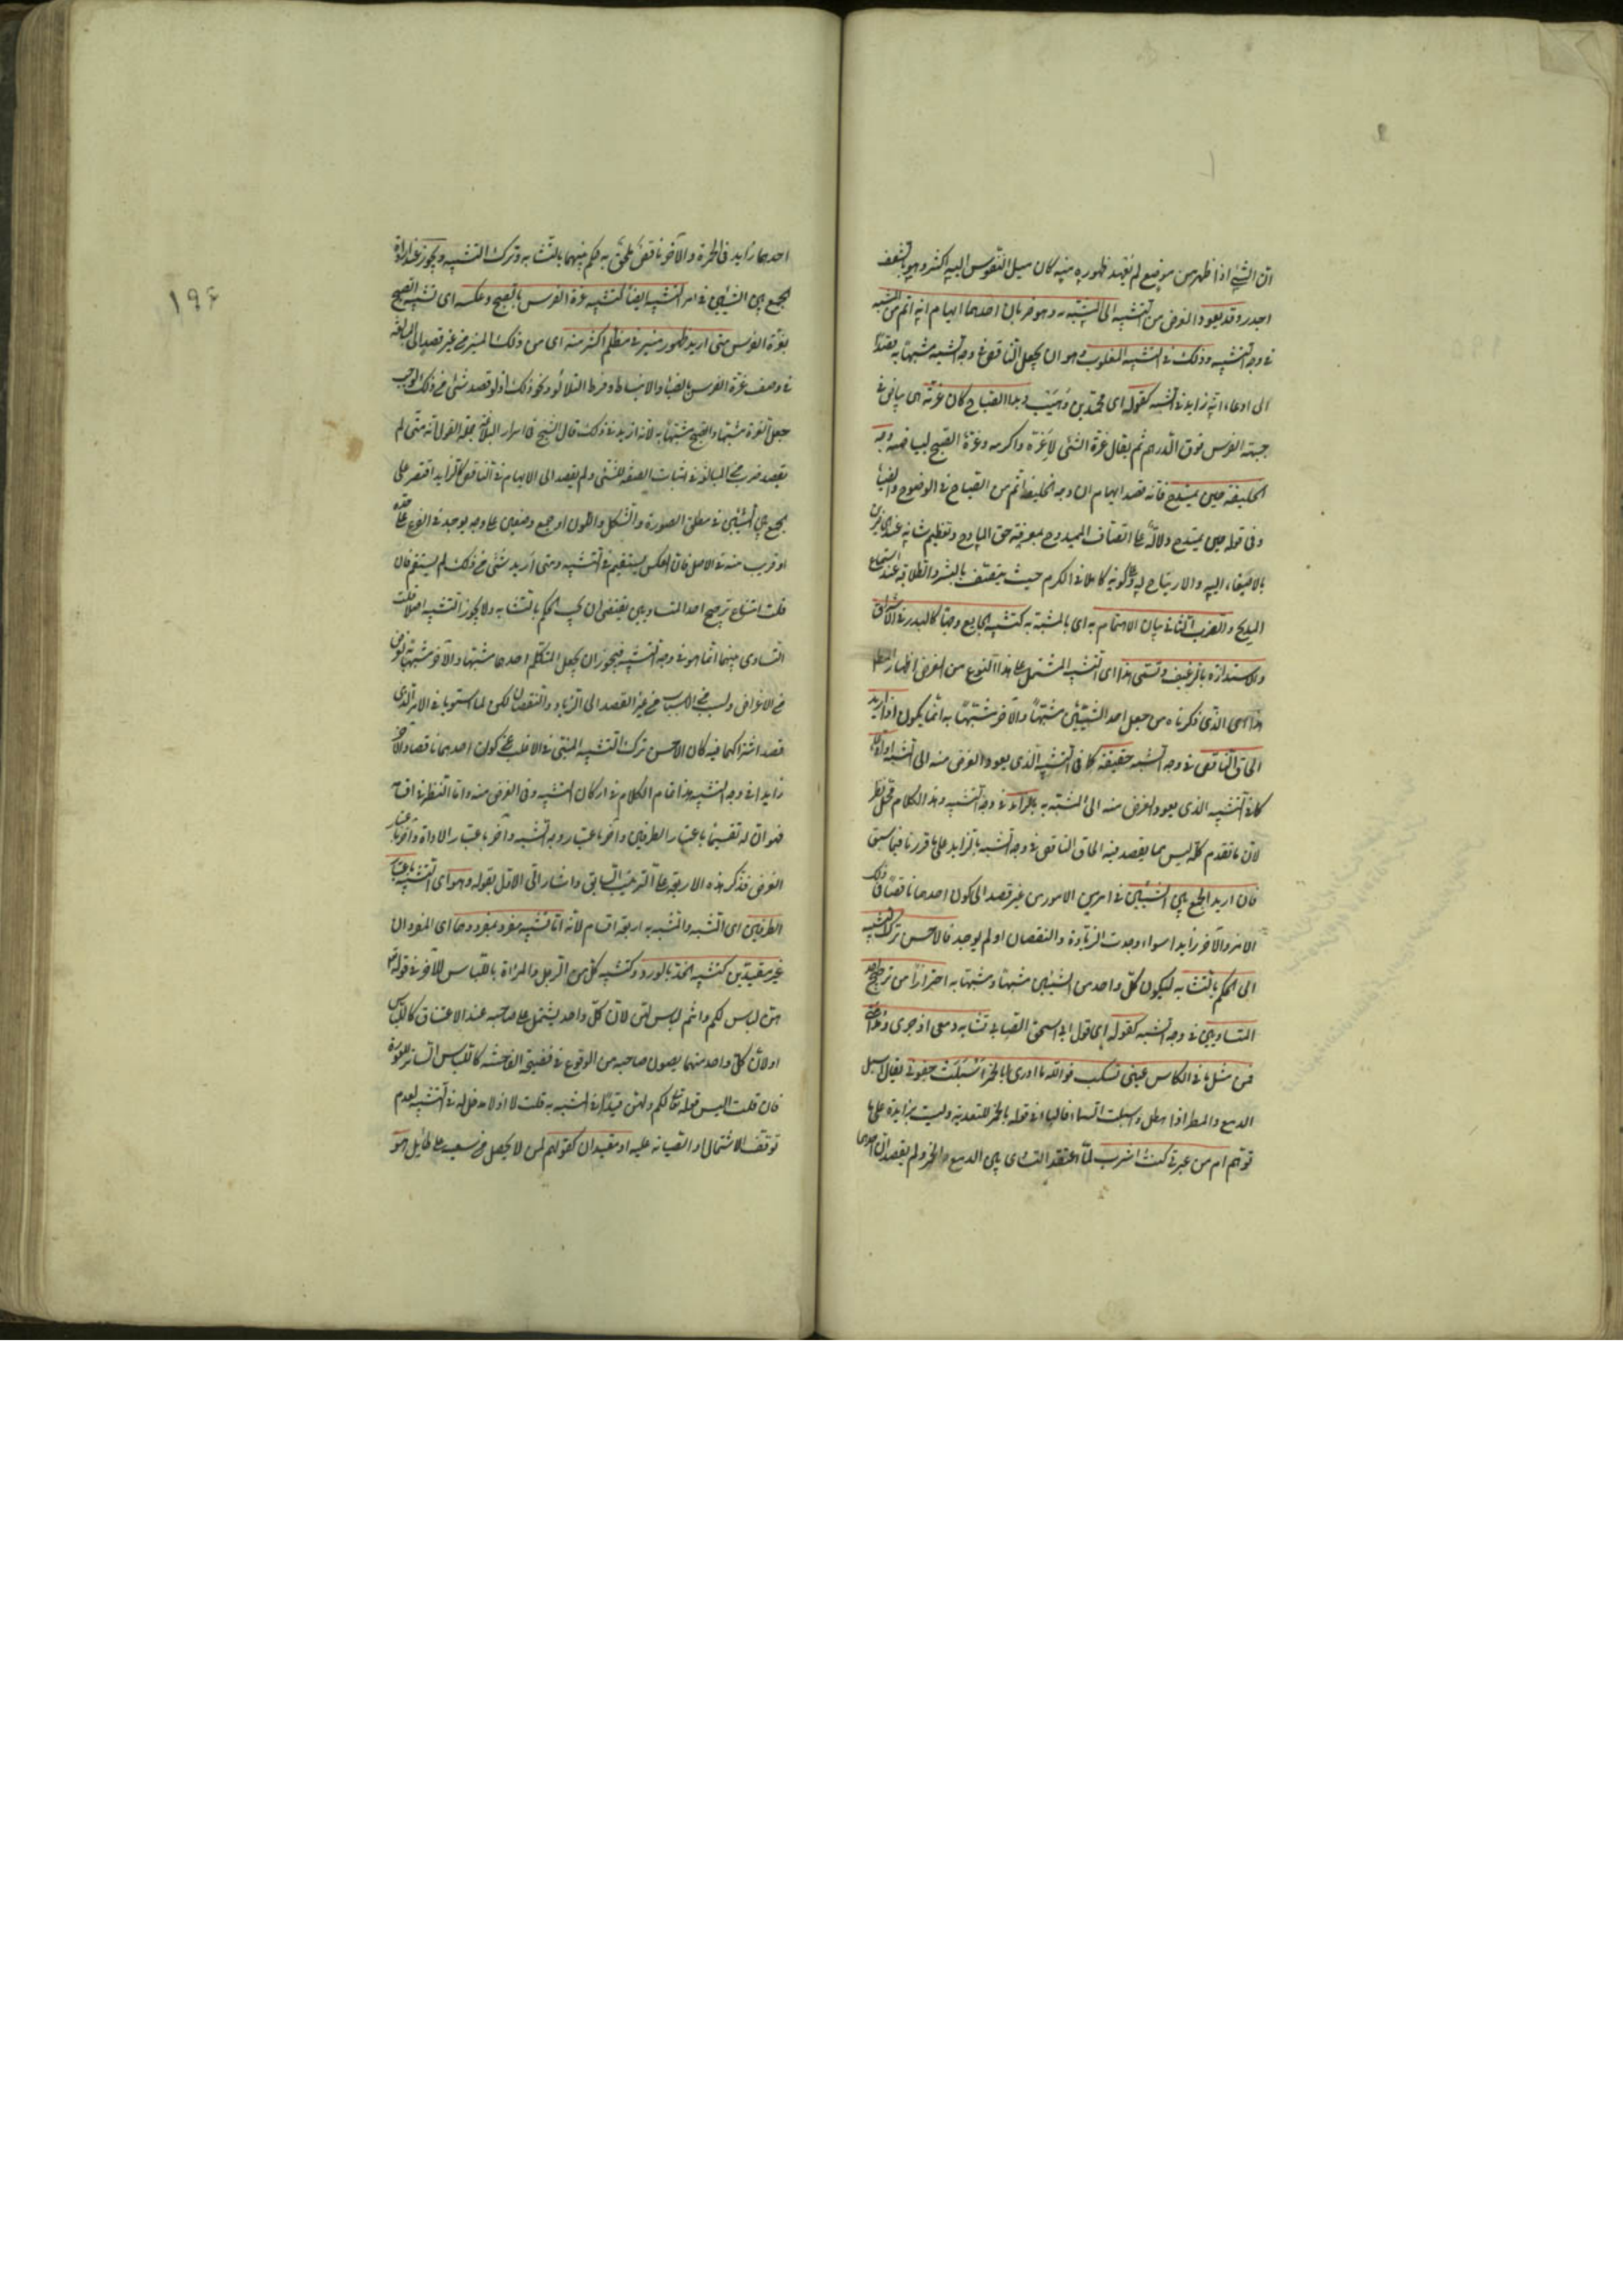 ان الشئ اذا ظهر من موضع لم يعهد ظهوره منه كان ميل النفوس اليه اكثر وهو بالشغف
اجدر وقد يعود الغرض من التشبيه الى المشبه به وهو ضربان احدهما ايهام انه اتم من المشبه
فى وجه التشبيه وذلك فى التشبيه المقلوب وهو ان يجعل الناقص فى وجه الشبه مشبها به قصدا
الى ادعاء انه زايد فى الشبه كقوله اى محمد بن وهيب وبدا الصباح كان غرته هى بياض فى
جبهة الفرس فوق الدرهم ثم يقال غرة الشئ لاغره واكرمه وغرة الصبح لبياضه وجه
الخليفة حين يمتدح فانه قصد ايهام ان وجه الخليفة اتم من الصباح فى الوضوح والضيا
وفى قوله حين يمتدح دلالة على اتصاف الممدوح بمعرفة حق المادح وتعظيم شانه عند الحاضرين
بالاصغاء اليه والارتياح له وعلى كونه كاملا فى الكرم حيث يتصف بالبشر والطلاقة عند استماع
المديح والضرب الثانى بيان الاهتمام به اى بالمشبه به كتشبيه الجايع وجها كالبدر فى الاشراق
والاستدارة بالرغيف وتسمى هذا اى التشبيه المشتمل على هذا النوع من الغرض اظهار المطلوب
هذا اى الذى ذكرناه من جعل احد الشيئين مشبها والآخر مشبها به انما يكون اذا اريد
الحاق الناقص فى وجه الشبه حقيقة كما فى التشبيه الذى يعود الغرض منه الى المشبه او ادعاء
كما فى التشبيه الذى يعود الغرض منه الى المشبه به بالزايد فى وجه التشبيه وهذا الكلام محل نظر
لان ما تقدم كله ليس مما يقصد فيه الحاق الناقص فى وجه الشبه بالزايد على ما قررنا فيما سبق
فان اريد الجمع بين الشيئين فى امر من الامور من غير قصد الى كون احدهما ناقصا فى ذلك
الامر والآخر زايدا سواء وجدت الزيادة والنقصان او لم يوجد فالاحسن ترك التشبيه
الى الحكم بالتشابه ليكون كل واحد من الشيئين مشبها ومشبها به احترازا من ترجيح احد
المتساويين فى وجه الشبه كقوله اى قول ابى اسحق الصابى تشابه دمعى اذ جرى ومدامتى
فمن مثل ما فى الكاس عينى تسكب فوالله ما ادرى أبالخمر اسبلت جفونى يقال اسبل
الدمع والمطر اذا هطل واسبلت السماء فالباء فى قوله بالخمر للتعدية وليست بزايدة على ما
توهم ام من عبرتى كنت اشرب لما اعتقد التساوى بين الدمع والخمر ولم يقصد ان احدهما
۱۹۶
احدهما زايد فى الحمرة والآخر ناقص يلحق به حكم بينهما بالتشابه وترك التشبيه ويجوز عند ارادة
الجمع بين الشيئين فى امر التشبيه ايضا كتشبيه غرة الفرس بالصبح وعكسه اى تشبيه الصبح
بغرة الفرس متى اريد ظهور منير فى مظلم اكثر منه اى من ذلك المنير من غير قصد الى المبالغة
فى وصف غرة الفرس بالضياء والانبساط وفرط التلألؤ ونحو ذلك اذ لو قصد شئ من ذلك لوجب
جعل الغرة مشبها والصبح مشبها به لانه ازيد فى ذلك قال الشيخ فى اسرار البلاغة جملة القول انه متى لم
يقصد ضرب من المبالغة فى اثبات الصفة للشئ ولم يقصد الى الايهام فى الناقص كالزايد اقتصر على
الجمع بين الشيئين فى مطلق الصورة والشكل واللون او جمع وصفين على وجه يوجد فى الفرع على حده
او قريب منه فى الاصل فان العكس يستقيم فى التشبيه ومتى اريد شئ من ذلك لم يستقم فان
قلت امتناع ترجيح احد المتساويين يقتضى ان يجب الحكم بالتشابه ولا يجوز التشبيه اصلا قلت
التساوى بينهما انما هو فى وجه التشبيه فيجوز ان يجعل المتكلم احدهما مشبها والآخر مشبها به لغرض
من الاغراض ولسبب من الاسباب من غير القصد الى الزيادة والنقصان لكن لما استويا فى الامر الذى
قصد اشتراكهما فيه كان الاحسن ترك التشبيه المنبئ فى الاغلب عن كون احدهما ناقصا والآخر
زايدا فى وجه التشبيه هذا تمام الكلام فى اركان التشبيه وفى الغرض منه واما النظر فى اقسامه
فهو ان له تقسيما باعتبار الطرفين وآخر باعتبار وجه الشبه وآخر باعتبار الاداة وآخر باعتبار
الغرض فذكر هذه الاربعة على الترتيب السابق واشار الى الاول بقوله وهو اى التشبيه باعتبار
الطرفين اى المشبه والمشبه به اربعة اقسام لانه اما تشبيه مفرد بمفرد وهما اى المفردان
غير مقيدين كتشبيه الخد بالورد وكتشبيه كل من الرجل والمراة باللباس للآخر فى قوله تعالى
هن لباس لكم وانتم لباس لهن لان كل واحد يشتمل على صاحبه عند الاعتناق كاللباس
او لان كل واحد منهما يصون صاحبه من الوقوع فى فضيحة الفاحشة كاللباس الساتر للعورة
فان قلت اليس قوله تعالى لكم ولهن قيدا فى المشبه به قلت لا اذ لا مدخل له فى التشبيه لعدم
توقف الاشتمال او الصيانة عليه او مقيدان كقولهم لمن لا يحصل من سعيه على طائل هو